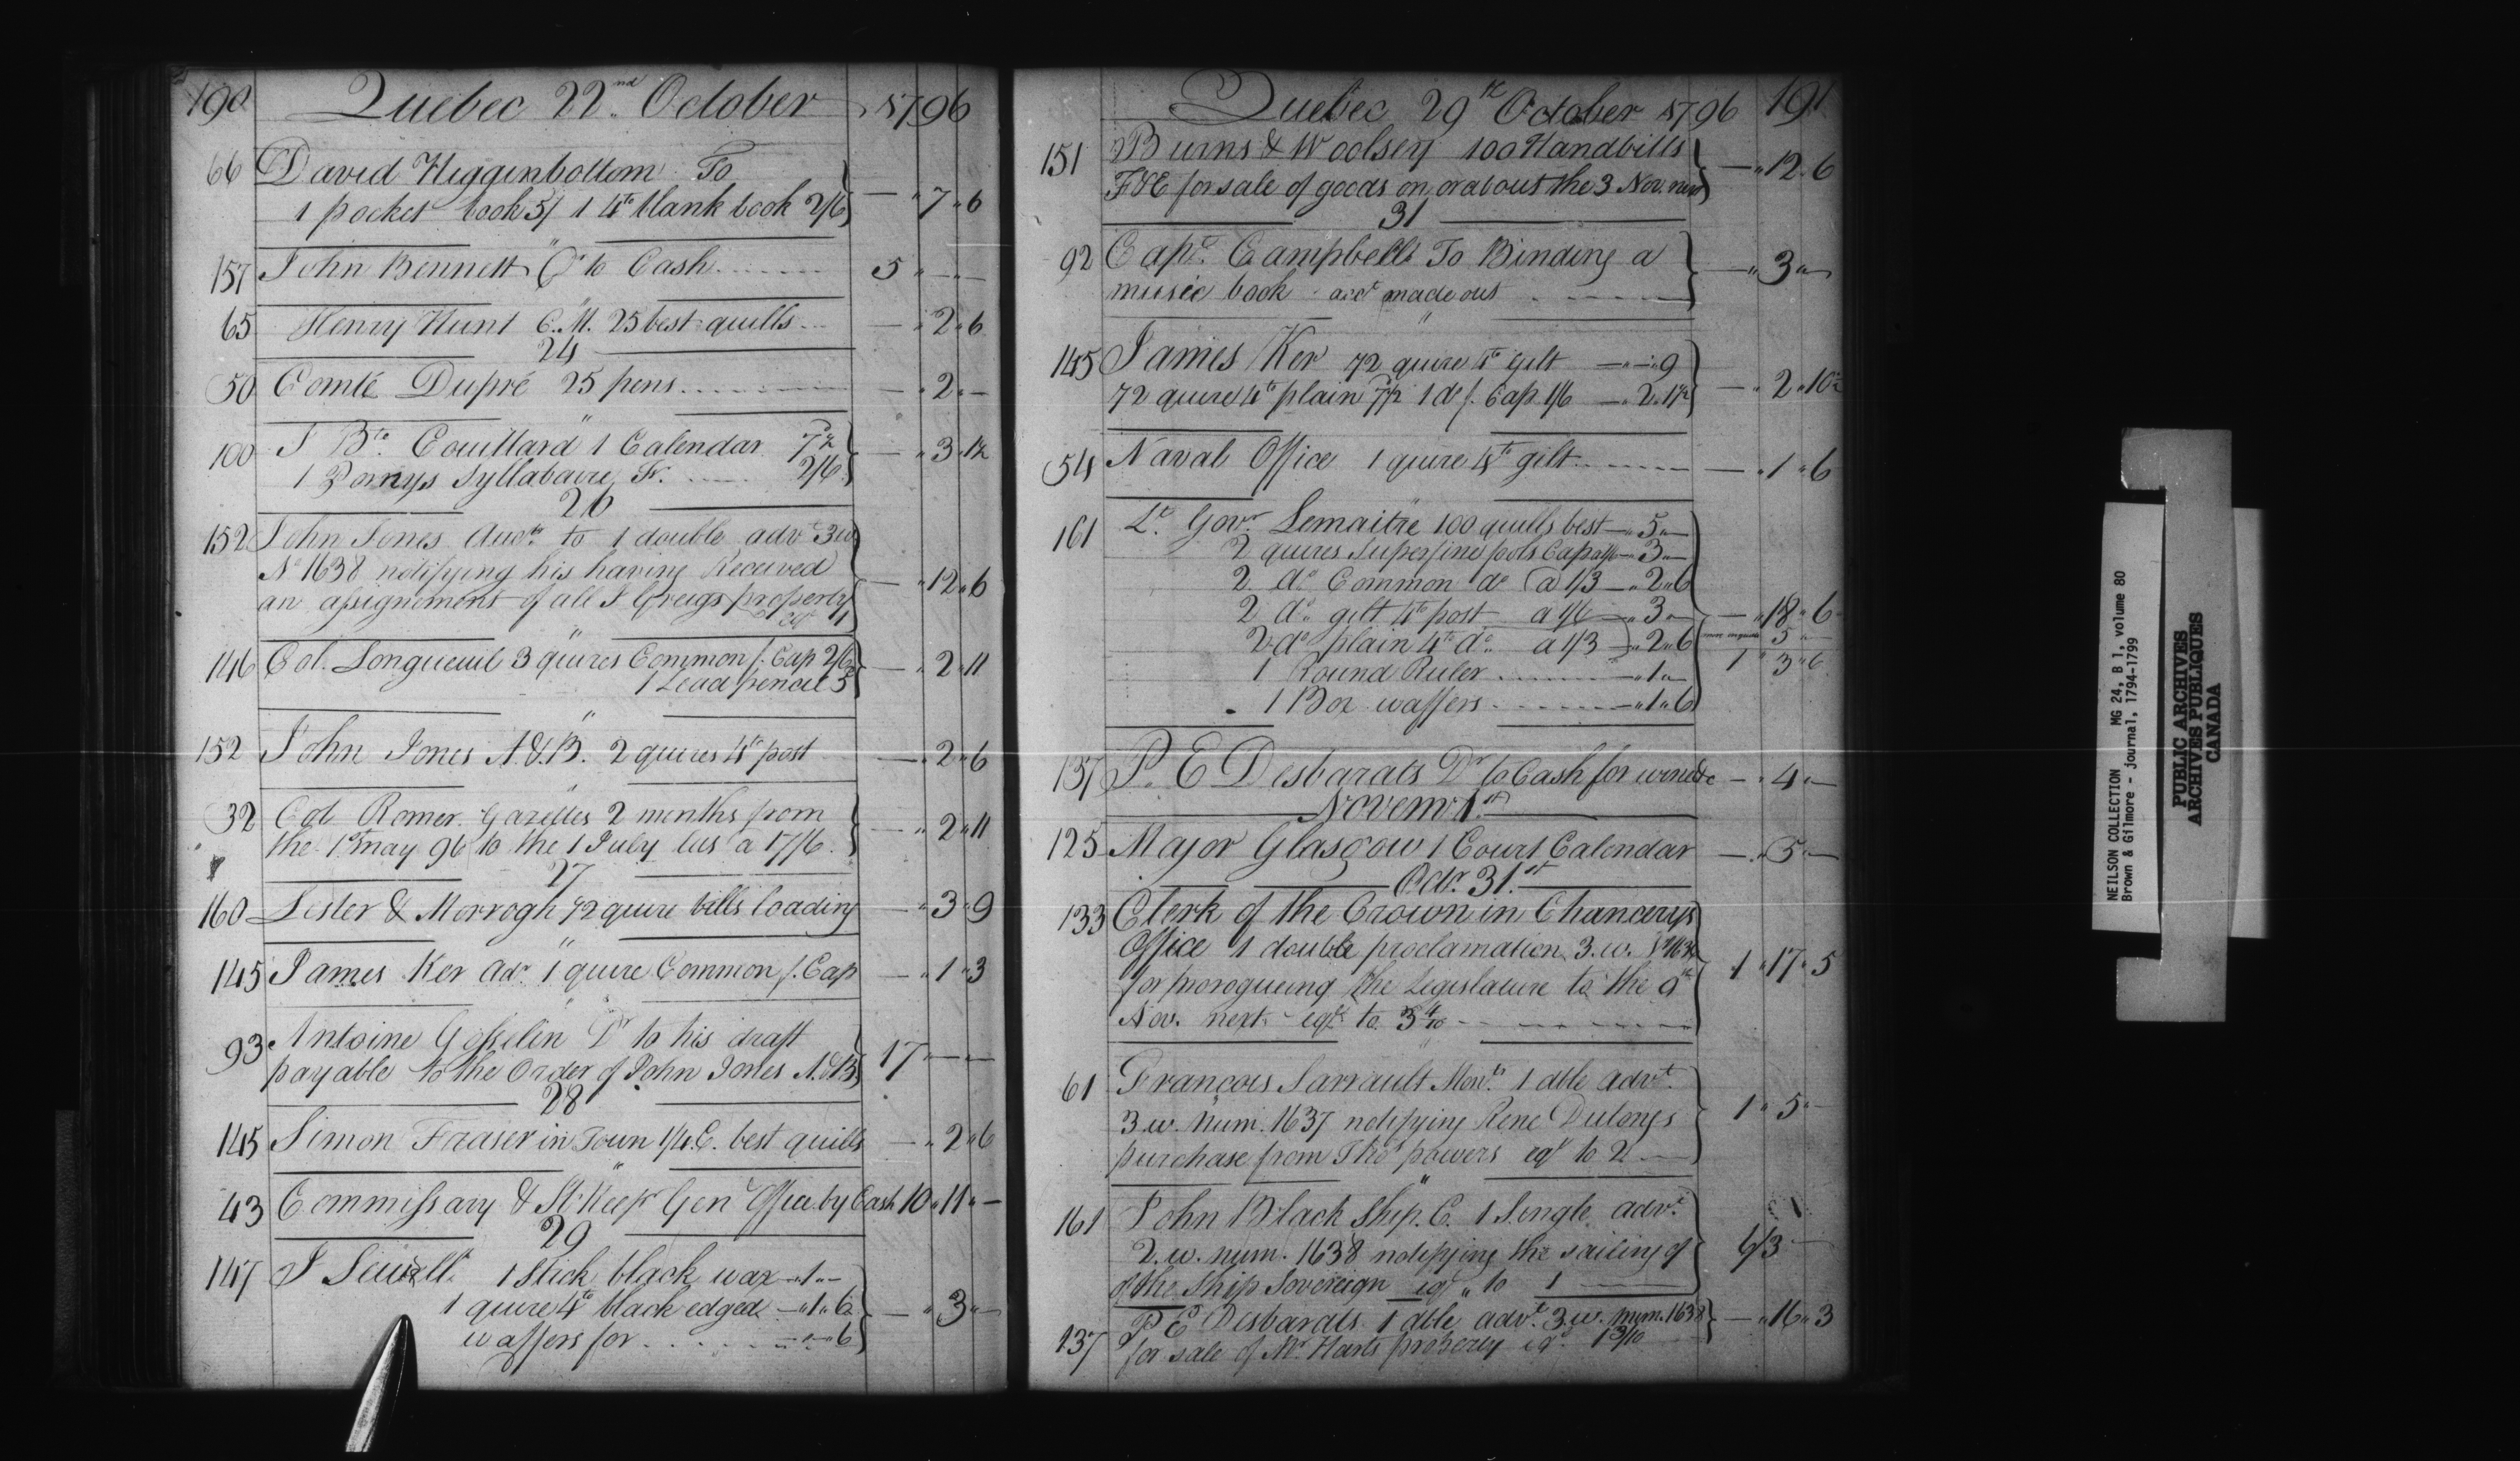 190 Quebec 22nd October 1796
66 David Higginbottom To
1 pocket book 5/ 1 4to blank book 2/6 — " 7 " 6
157 John Bennett Dr to Cash 5 " — " —
65 Henry Hunt C. M. 25 best quills — " 2 " 6
24
50 Comté Dupré 25 pens — " 2 " —
100 J Bte Couillard 1 Calendar 7½
1 Pornys Syllabaire Fr. 2/6 — " 3 " 1½
26
152 John Jones Auctr to 1 double advt 3w
No 1638 notifying his having Received
an assignement of all J Greigs property — " 12 " 6
eql 1
146 Col. Longueuil 3 quires Common f. Cap 2/6
1 Lead pencil 5 — " 2 " 11
152 John Jones A.&B. 2 quires 4to post — " 2 " 6
32 Col Romer Gazettes 2 months from
the 1st may 96 to the 1 July lus a 17/6 — " 2 " 11
27
160 Lester & Morrogh ½ quire bills loading — " 3 " 9
145 James Ker adv. 1 quire Common f. Cap — " 1 " 3
93 Antoine Gosselin Dr to his draft
payable to the Order of John Jones A.&B. 17 " — " —
28
145 Simon Fraser in Town 1/4 C. best quills — " 2 " 6
43 Commissary & St. Keepr Genl Office by Cash 10 " 11 " —
29
147 J Sewell 1 Stick black wax — " 1 " —
1 quire 4to black edged — " 1 " 6 — " 3 " —
waffers for " — " 6
Quebec 29th October 1796 191
151 Burns & Woolsey 100 Handbills
F&E for sale of goods on or about the 3 Nov. next — " 12 " 6
31
92 Capt. Campbell To Binding a
music book acct made out — " 3 " —
145 James Ker ½ quire 4to gilt — " — " 9
½ quire 4to plain 7½ 1 do f. Cap 1/6 — " 2 " 1½ — " 2 " 10½
54 Naval Office 1 quire 4to gilt — " 1 " 6
161 Lt. Govr Lemaitre 100 quills best — " 5 " —
2 quires Superfine fools Cap a 1/6 — " 3 " —
2 do Common do @ 1/3 — " 2 " 6
2 do gilt 4to post a 1/6 — " 3 " — — " 18 " 6
2 do plain 4to do a 1/3 — " 2 " 6 5 " —
1 Round Ruler — " 1 " — 1 " 3 " 6
1 Box waffers — " 1 " 6
137 P. E Desbarats Dr to Cash for wind &c — " 4 " —
Novemr 1st
125 Major Glasgow 1 Court Calendar — " 5 " —
Octr 31st
133 Clerk of the Crown in Chancerys
Office 1 double proclamation 3.w.
for prorogueing the Legislature to the 9th 1 " 17 " 5
Nov. next eql to 3 4/10
61 Francois Sarrault Mont. 1 dble advt.
3 w. Num. 1637 notifying Rene Dulongs 1 " 5 " —
purchase from Thos powers eql to 2
161 John Black Ship. C. 1 Single advt.
2.w. num. 1638 notifying the sailing of
of the Ship Sovereign eql " to 1
P E Desbarats 1 dble advt. 3.w. num. 1638 — " 16 " 3
137 for sale of Mr. Harts property eql 1 3/10
NEILSON COLLECTION MG 24, B 1, volume 80
Brown & Gilmore - journal, 1794-1799
PUBLIC ARCHIVES
ARCHIVES PUBLIQUES
CANADA